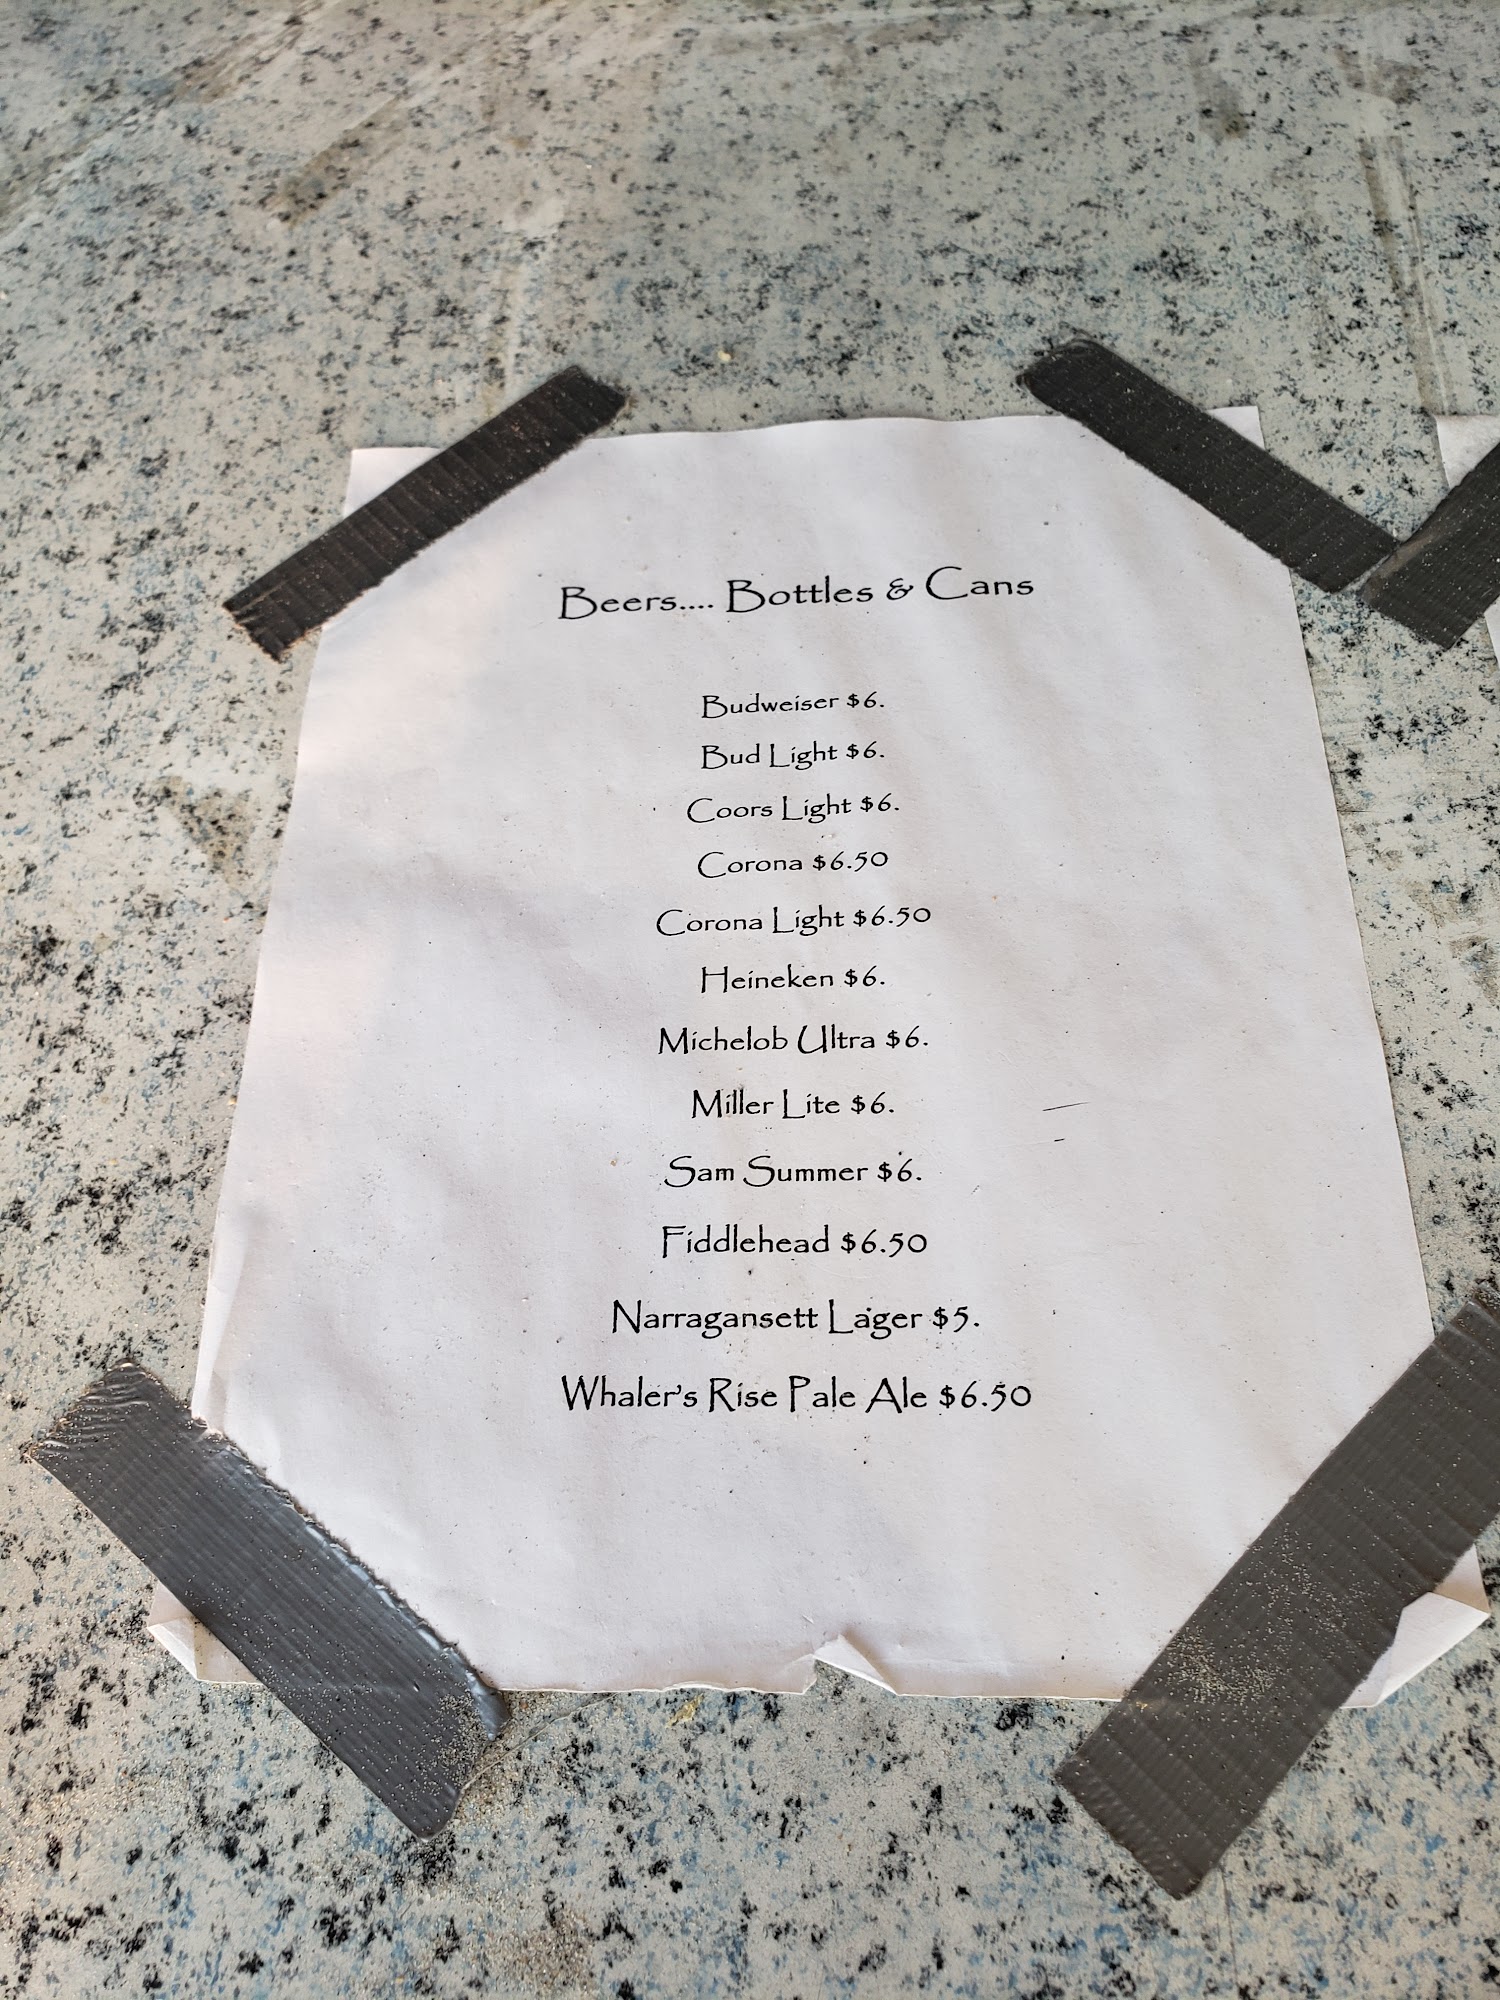 Beers.... Bottles & Cans
Budweiser $6.
Bud Light $6.
Coors Light $6.
Corona $6.50
Corona Light $6.50
Heineken $6.
Michelob Ultra $6.
Miller Lite $6.
Sam Summer $6.
Fiddlehead $6.50
Narragansett Lager $5.
Whaler's Rise Pale Ale $6.50